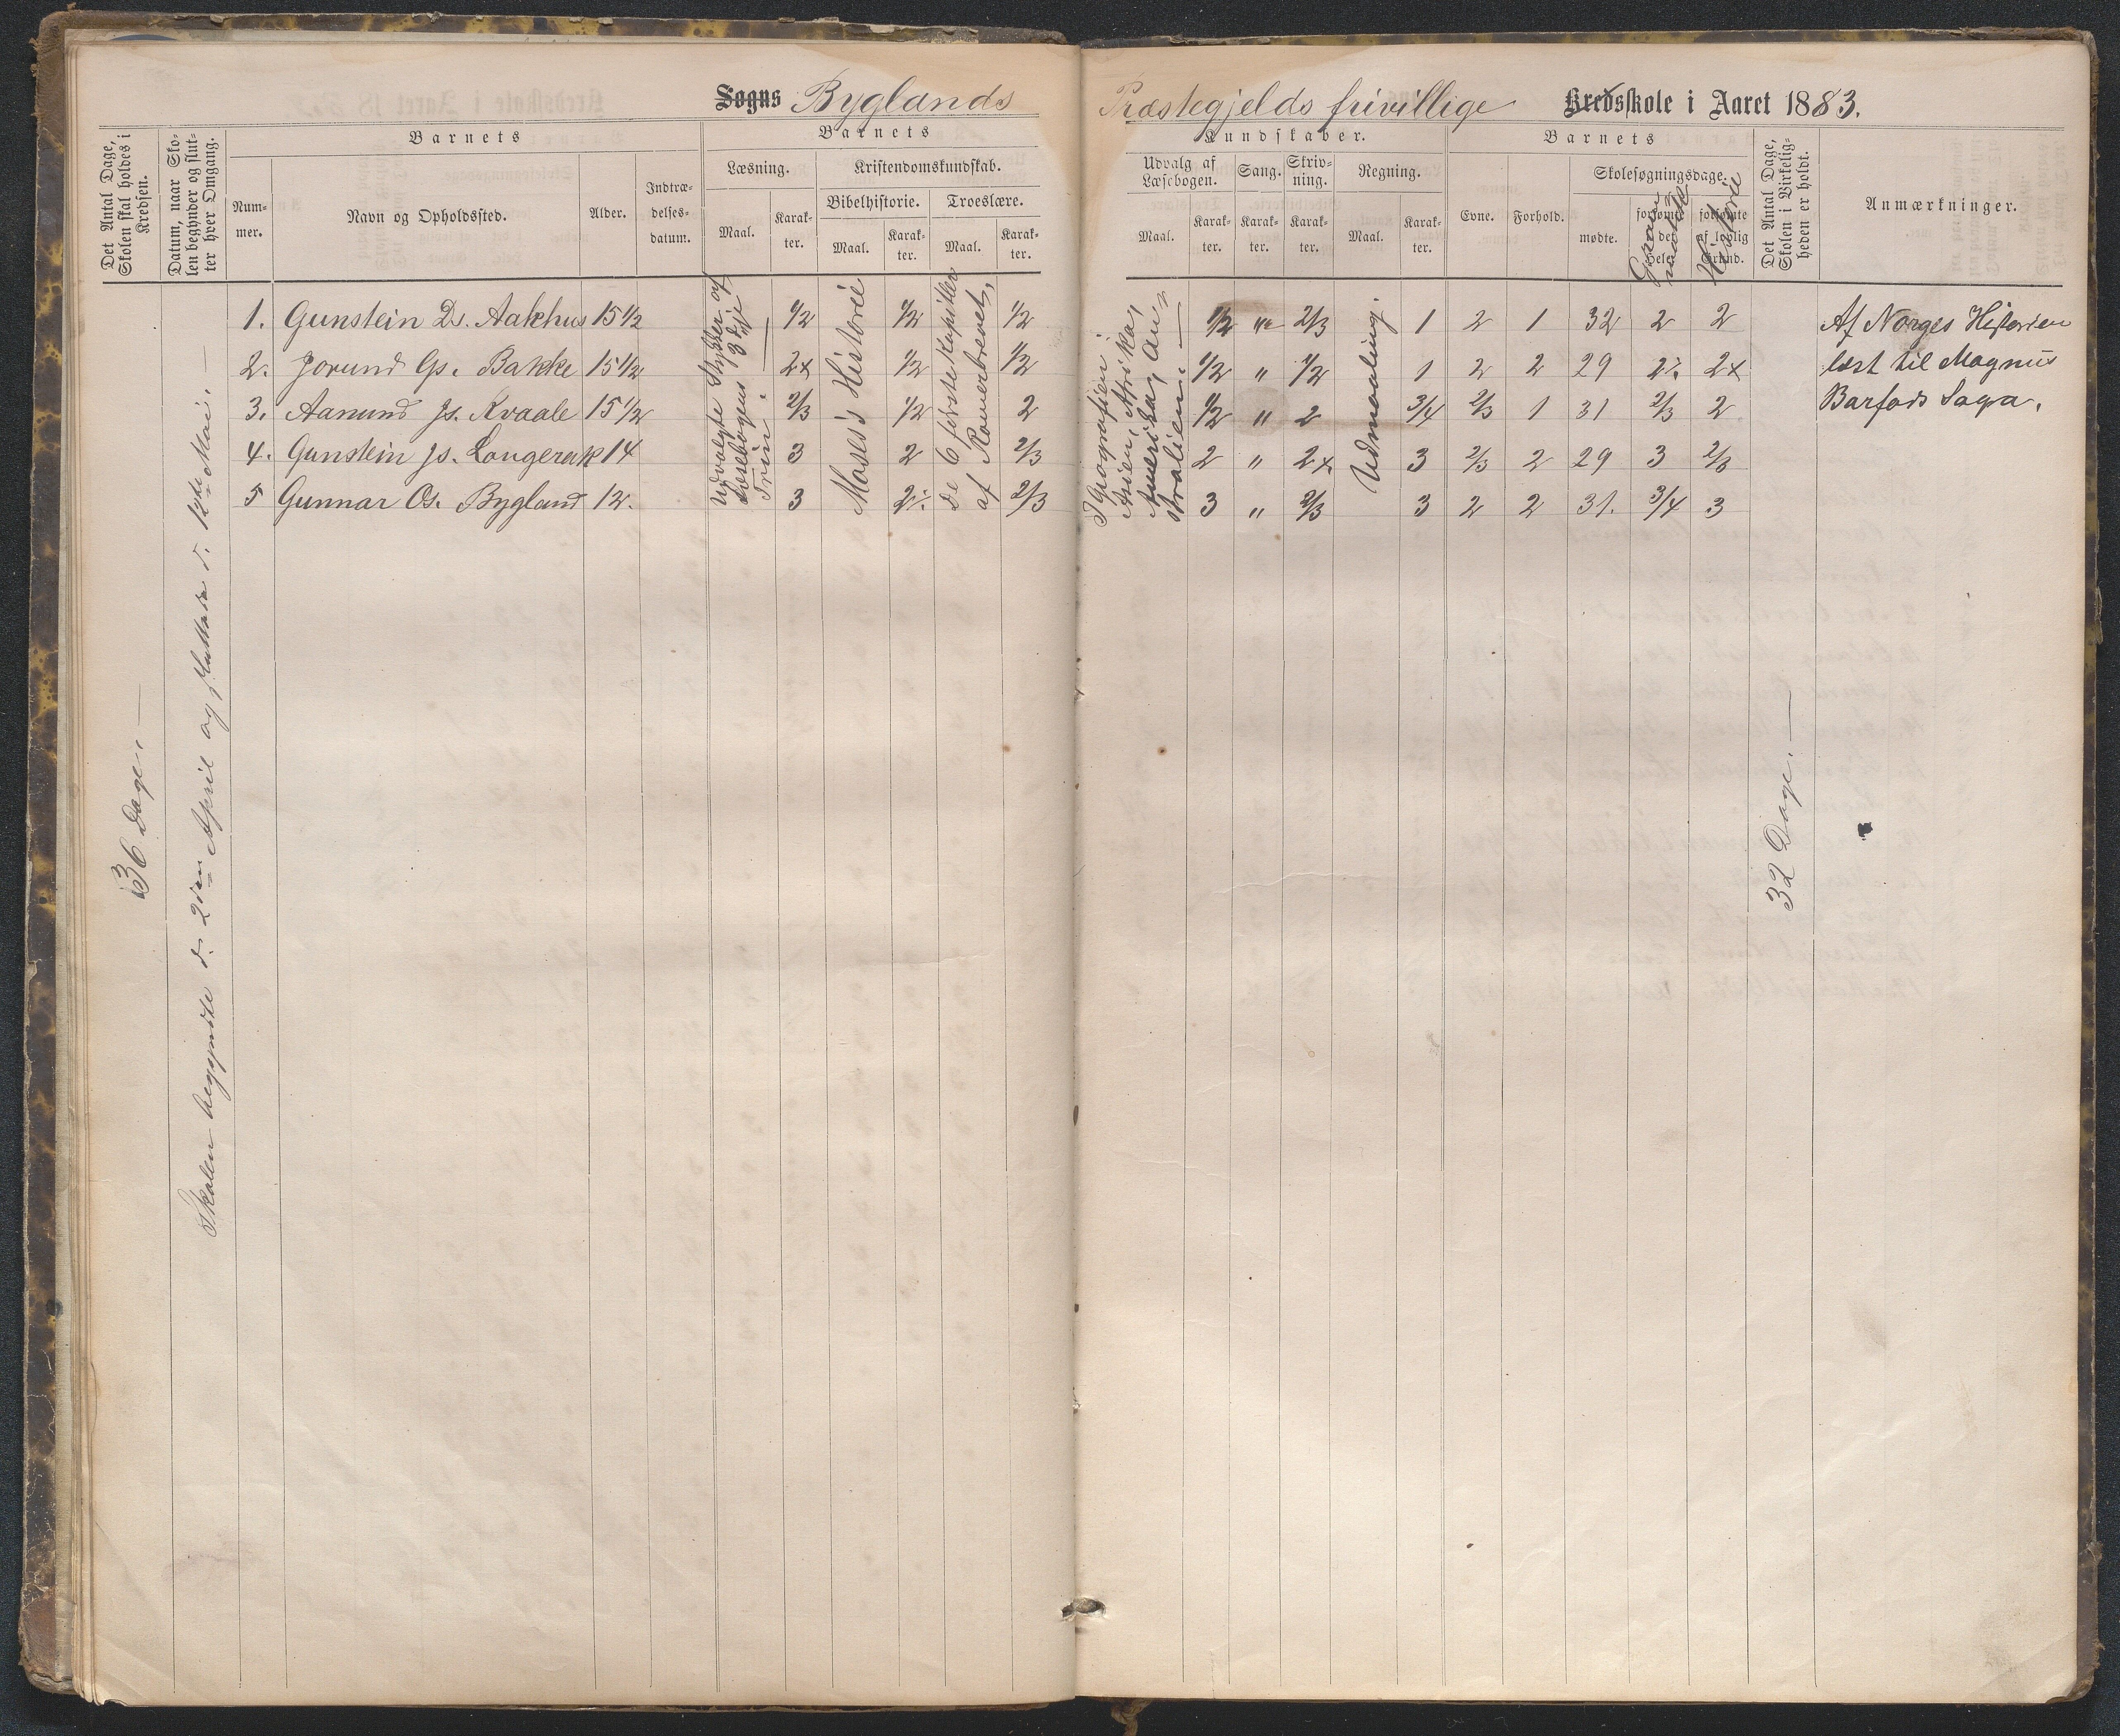 Sogns Byglands Præstegjelds frivillige Kredsskole i Aaret 1883.
Det Antal Dage, Skolen skal holdes i Kredsen.
Datum, naar Skolen begynder og slutter hver Omgang.
Barnets
Nummer.
Navn og Opholdssted.
Alder.
Indtrædelsesdatum.
Barnets Kundskaber.
Læsning.
Maal.
Karakter.
Kristendomskundskab.
Bibelhistorie.
Maal.
Karakter.
Troeslære.
Maal.
Karakter.
Udvalg af Læsebogen.
Maal.
Karakter.
Sang.
Karakter.
Skrivning.
Karakter.
Regning.
Maal.
Karakter.
Barnets
Evne.
Forhold.
Skolesøgningsdage.
mødte.
forsømte det Hele.
forsømte af lovlig Grund.
Historie
Det Antal Dage, Skolen i Virkeligheden er holdt.
Anmærkninger.
36 Dage. —
Skolen begyndte d. 2den April og sluttede d. 12te Mai. —
1. Gunstein Ds. Aakhus 15 1/2 1/2 1/2 1/2 1/2 " 2/3 1 2 1 32 2 2
2. Jorund Gs. Bakke 15 1/2 2x 1/2 1/2 1/2 " 1/2 1 2 2 29 2÷ 2x
3. Aanund Js. Kvaale 15 1/2 2/3 1/2 2 1/2 " 2 3/4 2/3 1 31 2/3 2
4. Gunstein Js. Longerak 14 3 2 2/3 2 " 2x 3 2/3 2 29 3 2/3
5 Gunnar Os. Bygland 12. 3 2÷ 2/3 3 " 2/3 3 2 2 31. 3/4 3
Udvalgte Stykker af
Læsebogens 3dje —
Trin.
Moses's Historie
De 6 første Kapitler
af Romerbrevet,
I Geografien:
Asien, Afrika,
Amerika, Au-
stralien. —
Udmaaling.
32 Dage. —
Af Norges Historien
læst til Magnus
Barfods Saga.